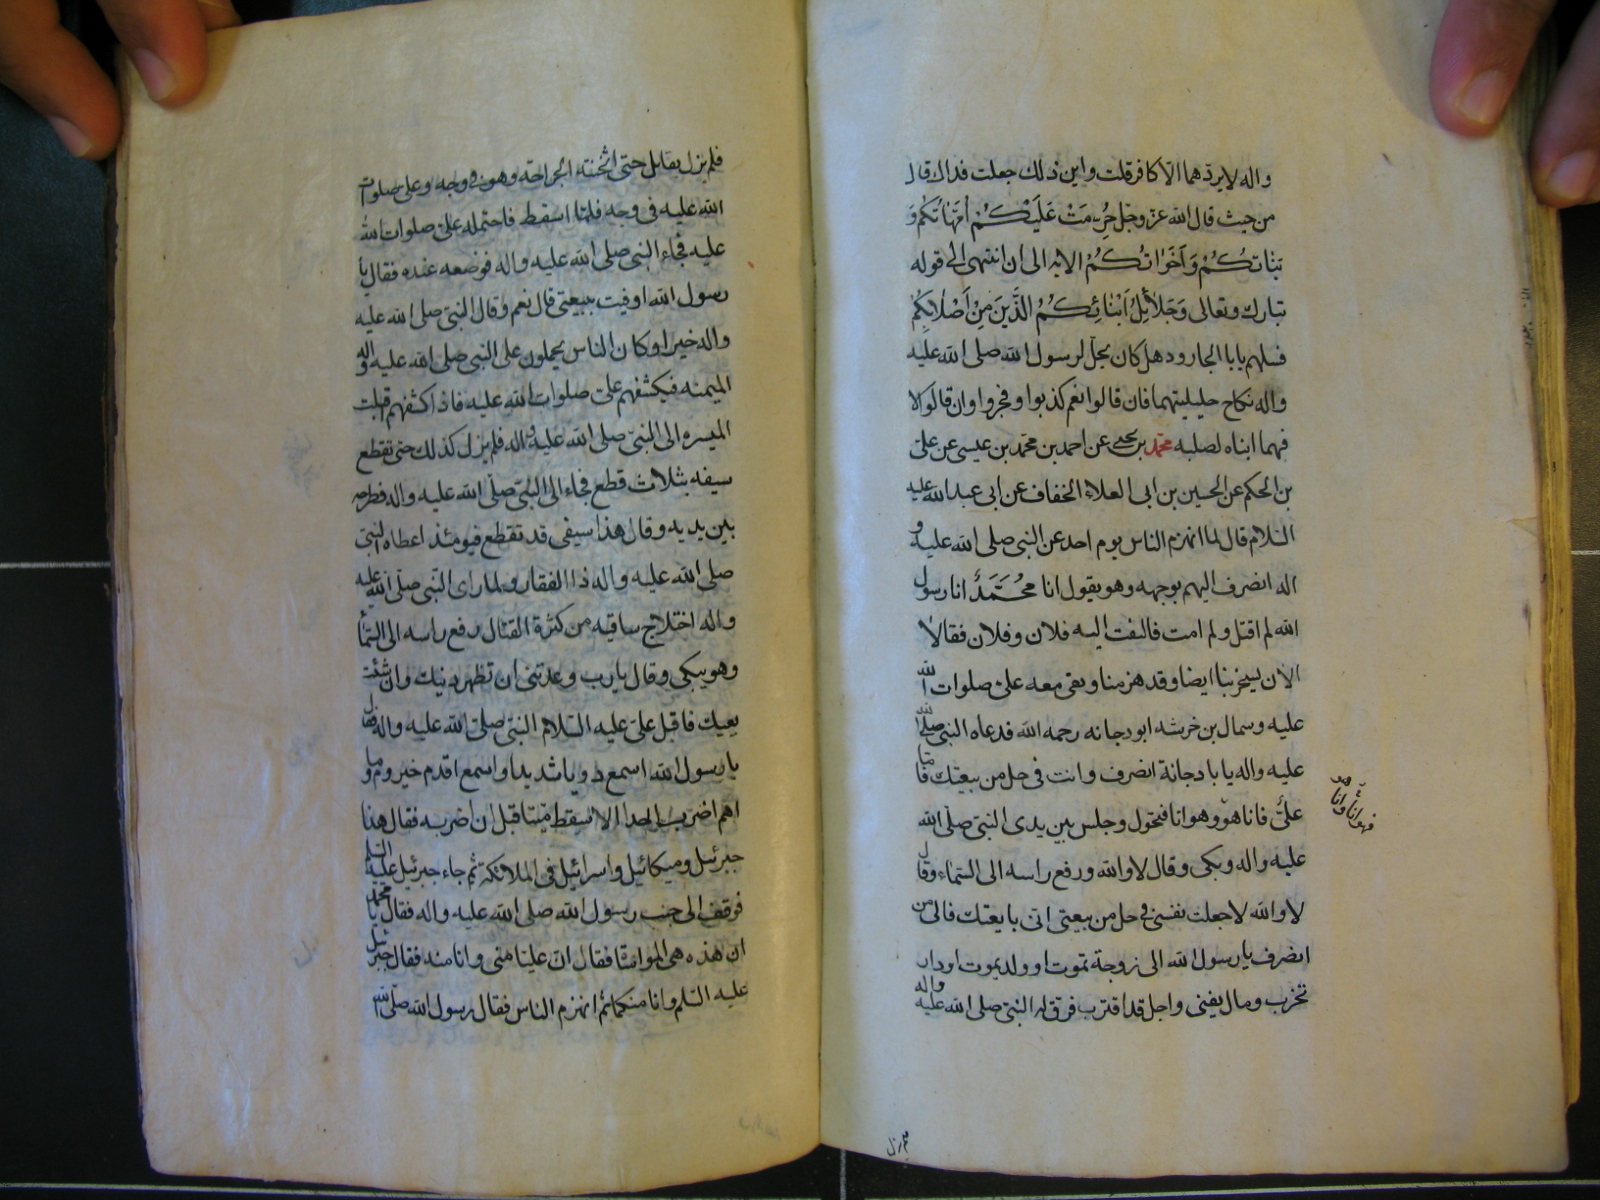 واله لا يردهما الا كافر قلت واين ذلك جعلت فداك قال
من حيث قال الله عز وجل حُرِّمَتْ عَلَيْكُمْ أُمَّهَاتُكُمْ وَ
بَنَاتُكُمْ وَأَخَوَاتُكُمْ الايه الى ان انتهى الى قوله
تبارك وتعالى وَحَلَائِلُ أَبْنَائِكُمُ الَّذِينَ مِنْ أَصْلَابِكُمْ
فسلهم يابا الجارود هل كان يحل لرسول الله صلى الله عليه
واله نكاح حليلتيهما فان قالوا نعم كذبوا وفجروا وان قالوا لا
فهما ابناه لصلبه محمد بن يحيى عن احمد بن محمد بن عيسى عن على
بن الحكم عن الحسين بن ابى العلاء الخفاف عن ابى عبد الله عليه
السلام قال لما انهزم الناس يوم احد عن النبى صلى الله عليه و
اله انصرف اليهم بوجهه وهو يقول انا محُمَّدٌ انا رسول
الله لم اقتل ولم امت فالتفت اليه فلان وفلان فقالا
الان يسخر بنا ايضا وقد هزمنا وبقى معه على صلوات الله
عليه وسماك بن خرشه ابو دجانه رحمه الله فدعاه النبى صلى الله
عليه واله يابا دجانة انصرف وانت فى حل من بيعتك فاما
علىّ فانا هو وهو انا فتحول وجلس بين يدى النبى صلى الله
فهو انا وانا هو
عليه واله وبكى وقال لا والله ورفع راسه الى السماء وقال
لا والله لا جعلت نفسى فى حل من بيعتى انى بايعتك فالى من
انصرف يا رسول الله الى زوجة تموت او ولد يموت او دار
تخرب ومال يفنى واجل قد اقترب فرق له النبى صلى الله عليه واله
فلم يزل
فلم يزل يقاتل حتى اثخنته الجراحة وهو فى وجه وعلى صلوات
الله عليه فى وجه فلما اسقط فاحتمله علىّ صلوات الله
عليه فجاء النبى صلى الله عليه واله فوضعه عنده فقال يا
رسول الله اوفيت ببيعتى قال نعم وقال النبىّ صلى الله عليه
واله خيرا وكان الناس يحملون على النبى صلى الله عليه واله
الميمنه فيكشفهم علىّ صلوات الله عليه فاذا كشفهم اقبلت
الميسره الى النبىّ صلى الله عليه واله فلم يزل كذلك حتى تقطع
سيفه بثلاث قطع فجاء الى النبىّ صلّى الله عليه واله فطرحه
بين يديه وقال هذا سيفى قد تقطع فيومئذ اعطاه النبىّ
صلى الله عليه واله ذا الفقار ولما راى النبى صلى الله عليه
واله اختلاج ساقيه من كثرة القتال رفع راسه الى السماء
وهو يبكى وقال يا رب وعدتنى ان تظهر دينك وان شئت لم
يعيك فاقبل علىّ عليه السلام النبىّ صلى الله عليه واله فقال
يا رسول الله اسمع دويا شديدا واسمع اقدم حيزوم وما
اهم اضرب احدا الا سقط ميّتا قبل ان اضربه فقال هذا
جبرئيل وميكائيل واسرافيل فى الملائكة ثم جاء جبرئيل عليه السلم
فوقف الى جنب رسول الله صلى الله عليه واله فقال يا محمد
ان هذه هى المواساة فقال انّ عليّا منى وانا منه فقال جبرئيل
عليه السلم وانا منكما ثم انهزم الناس فقال رسول الله صلّى الله